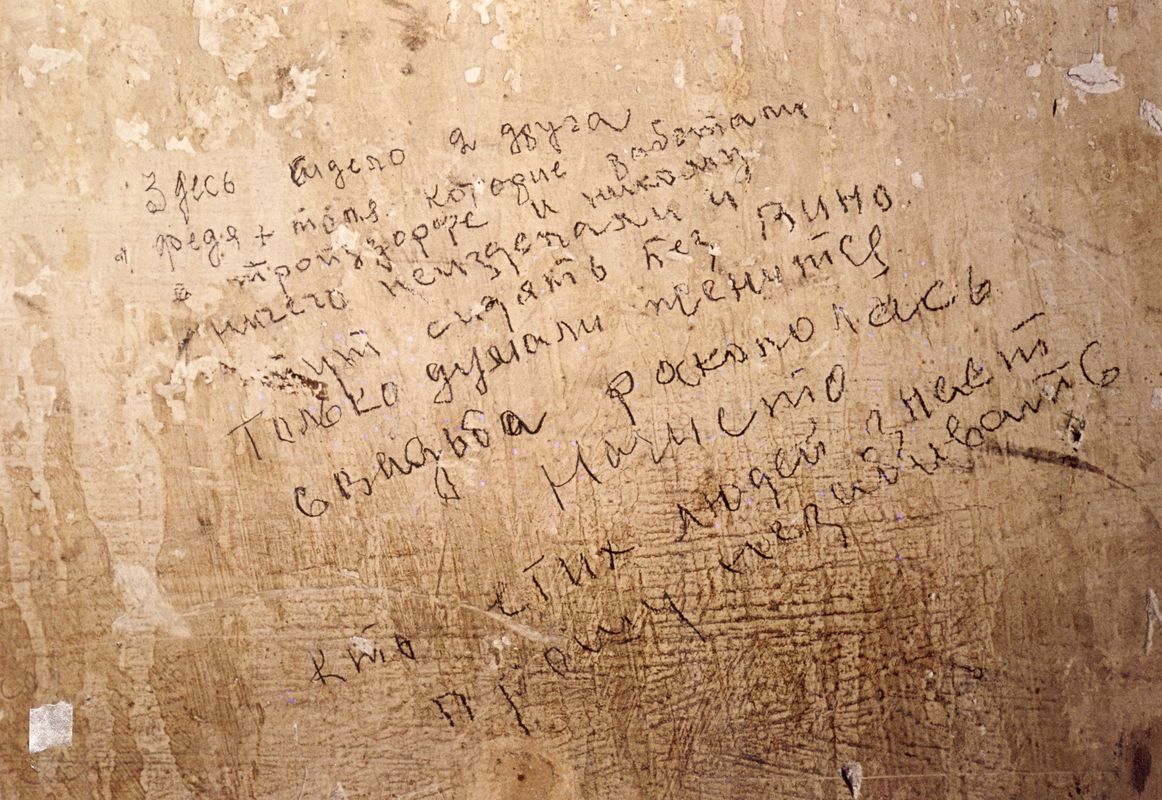 Здесь сидело 2 друга
1 федя + толя. которие работали
в и никому
ничего неизделали и
тут сидять без вино.
Только думали женитця
свадьба роскололась
Начисто
кто етих людей знает
прошу незабивать